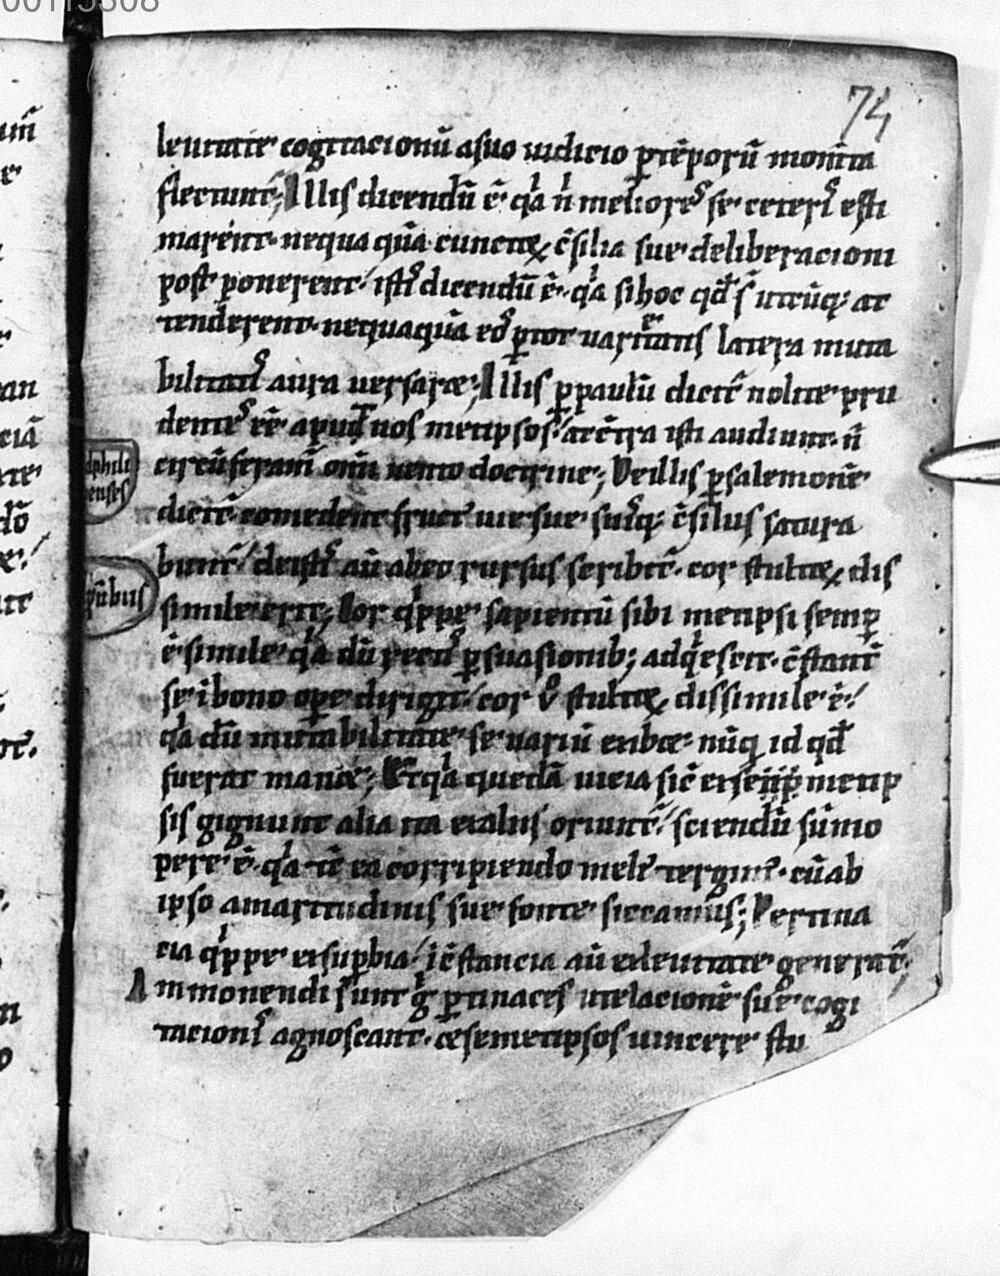 00115308
74
leuitate cogitacionū a suo iudicio ꝑ tēporū momta
flectunt̄; Illis dicendū ē qͥa ń meliores se ceteris esti
marent nequaquā cunctoꝝ ↄ̄silia sue deliberacioni
post ponerent istis dicendū ē qͥa si hoc qd̄ sͭ utcūqꝫ at
tenderent nequaquā eos ꝑ tot uarietatis latera muta
bilitatis aura uersaret; Illis ꝑ paulū dicit̄ nolite pru
dentes ēē apud uos metip̄sos at ↄ̄tra isti audiunt ń
circūferam̄ om̄i uento doctrine; De illis ꝑ salemonē
dicit̄ comedent fructꝰ uie sue suisqꝫ ↄ̄siliis satura
bunt̄ de istis aū ab eo rursus scribit̄ cor stultoꝝ dis
simile erit; Cor qͥppe sapientū sibi metipsi semꝑ
ē simile qͥa dū rectis ꝑsuasionibꝫ adqͥescit ↄ̄stant̄
se ī bono oꝑe dirigit cor ỏ stultoꝝ dissimile ē
qͥa dū mutabilitate se uariū exhibet nūqͣ id qd̄
fuerat manet; Et qͥa quedā uicia sic̄ ex se ip̄ metip
sis gignunt alia ita ex aliis oriunt̄ sciendū sūmo
pere ē qͥa tc̄ ea corripiendo meliꝰ tergimꝰ cū ab
ipso amaritudinis sue fonte siccamus; Pertina
cia qͥppe ex suꝑbia īↄ̄stancia aū ex leuitate generat̄;
Ammonendi sunt gͦ ꝑtinaces ut elacionē sue cogi
tacionis agnoscant et semetipsos uincere stu
dphili
enses
ꝓūbiis